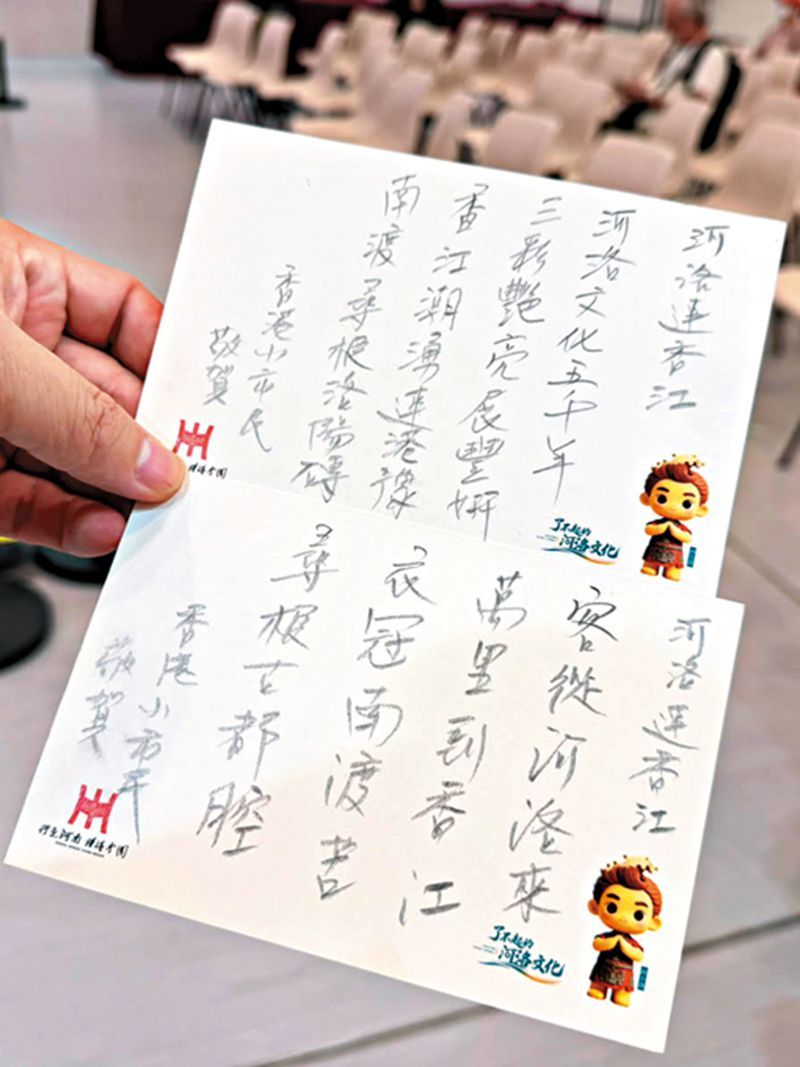 河洛連香江
河洛文化五千年
三彩艷亮展豐妍
香江潮湧連港豫
南渡尋根洛陽磚
香港小市民
敬賀
了不起的
河洛文化
河洛連香江
客從河洛來
萬里到香江
衣冠南渡苦
尋根古都腔
香港小市民
敬賀
行走河南 读懂中国
了不起的
河洛文化